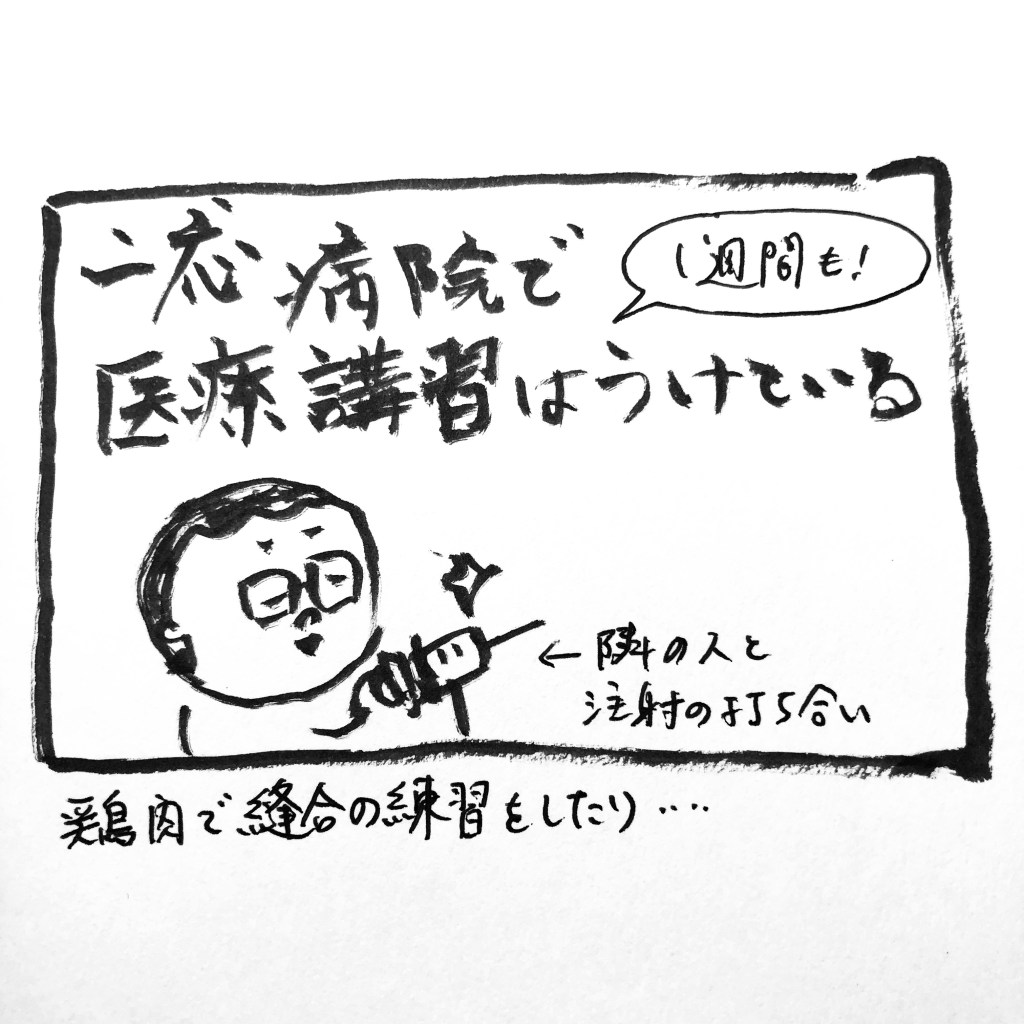 一応病院で
1週間も!
医療講習はうけている
←隣の人と
注射の打ち合い
鶏肉で縫合の練習をしたり‥‥